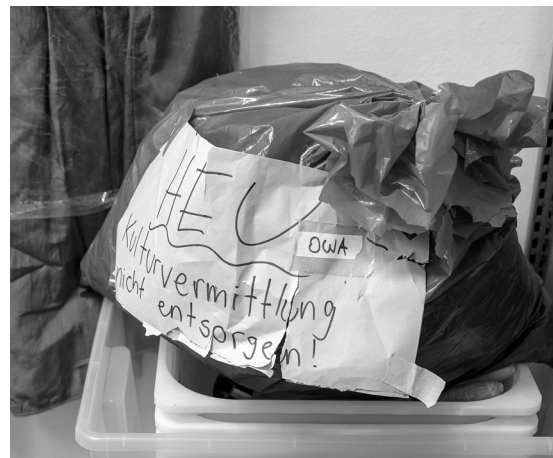 HEU
OWA
Kulturvermittlung
nicht entsorgen!